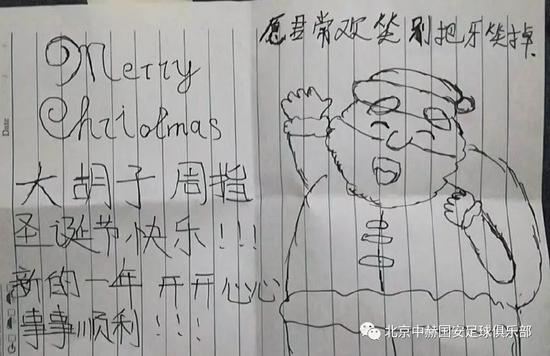 Merry
Chriotmas
大胡子周指
圣诞节快乐!!!
新的一年 开开心心
事事顺利!!!
愿君常欢笑 别把牙笑掉
Date
北京中赫国安足球俱乐部